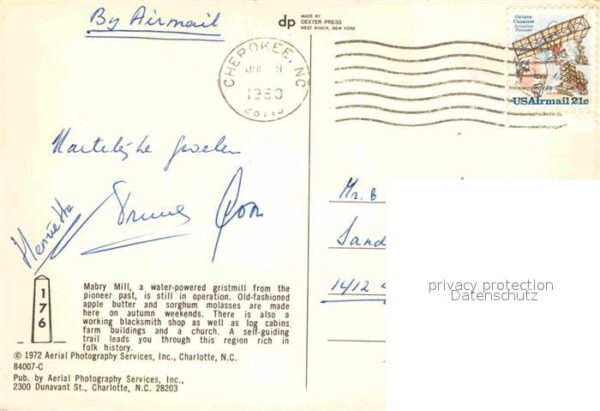 By Airmail
dp
MADE BY
DEXTER PRESS
WEST NYACK, NEW YORK
CHEROKEE, NC
1980
28719
Octave
Chanute
Aviation
Pioneer
USAirmail 21c
Hartelijke groeten
Henriette
Mr.
Sand
1412
privacy protection
Datenschutz
176
Mabry Mill, a water-powered gristmill from the
pioneer past, is still in operation. Old-fashioned
apple butter and sorghum molasses are made
here on autumn weekends. There is also a
working blacksmith shop as well as log cabins,
farm buildings and a church. A self-guiding
trail leads you through this region rich in
folk history.
© 1972 Aerial Photography Services, Inc., Charlotte, N.C.
84007-C
Pub. by Aerial Photography Services, Inc.,
2300 Dunavant St., Charlotte, N.C. 28203